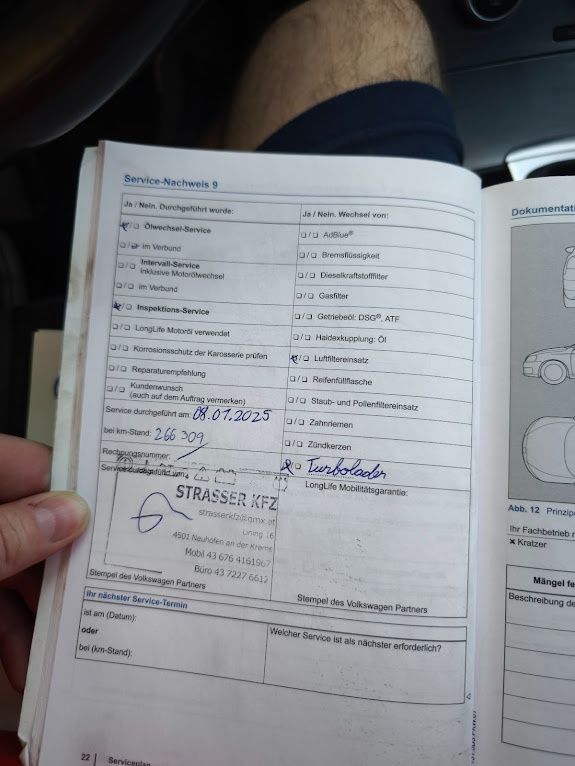 Service-Nachweis 9
Ja / Nein. Durchgeführt wurde:
Ölwechsel-Service
im Verbund
Intervall-Service
inklusive Motorölwechsel
im Verbund
Inspektions-Service
LongLife Motoröl verwendet
Korrosionsschutz der Karosserie prüfen
Reparaturempfehlung
Kundenwunsch
(auch auf dem Auftrag vermerken)
Service durchgeführt am: 08.01.2025
bei km-Stand: 266 309
Rechnungsnummer:
Service durchgeführt von:
STRASSER KFZ
strasserkfz@gmx.at
16
4501 Neuhofen an der Krems
Mobil 43 676 4161967
Büro 43 7227 6612
Stempel des Volkswagen Partners
Ja / Nein. Wechsel von:
AdBlue®
Bremsflüssigkeit
Dieselkraftstofffilter
Gasfilter
Getriebeöl: DSG®, ATF
Haldexkupplung: Öl
Luftfiltereinsatz
Reifenfüllflasche
Staub- und Pollenfiltereinsatz
Zahnriemen
Zündkerzen
Turbolader
LongLife Mobilitätsgarantie:
Stempel des Volkswagen Partners
Ihr nächster Service-Termin
ist am (Datum):
oder
bei (km-Stand):
Welcher Service ist als nächster erforderlich?
22 | Serviceplan
Dokumentati
Abb. 12 Prinzipd
Ihr Fachbetrieb
× Kratzer
Mängel fe
Beschreibung de